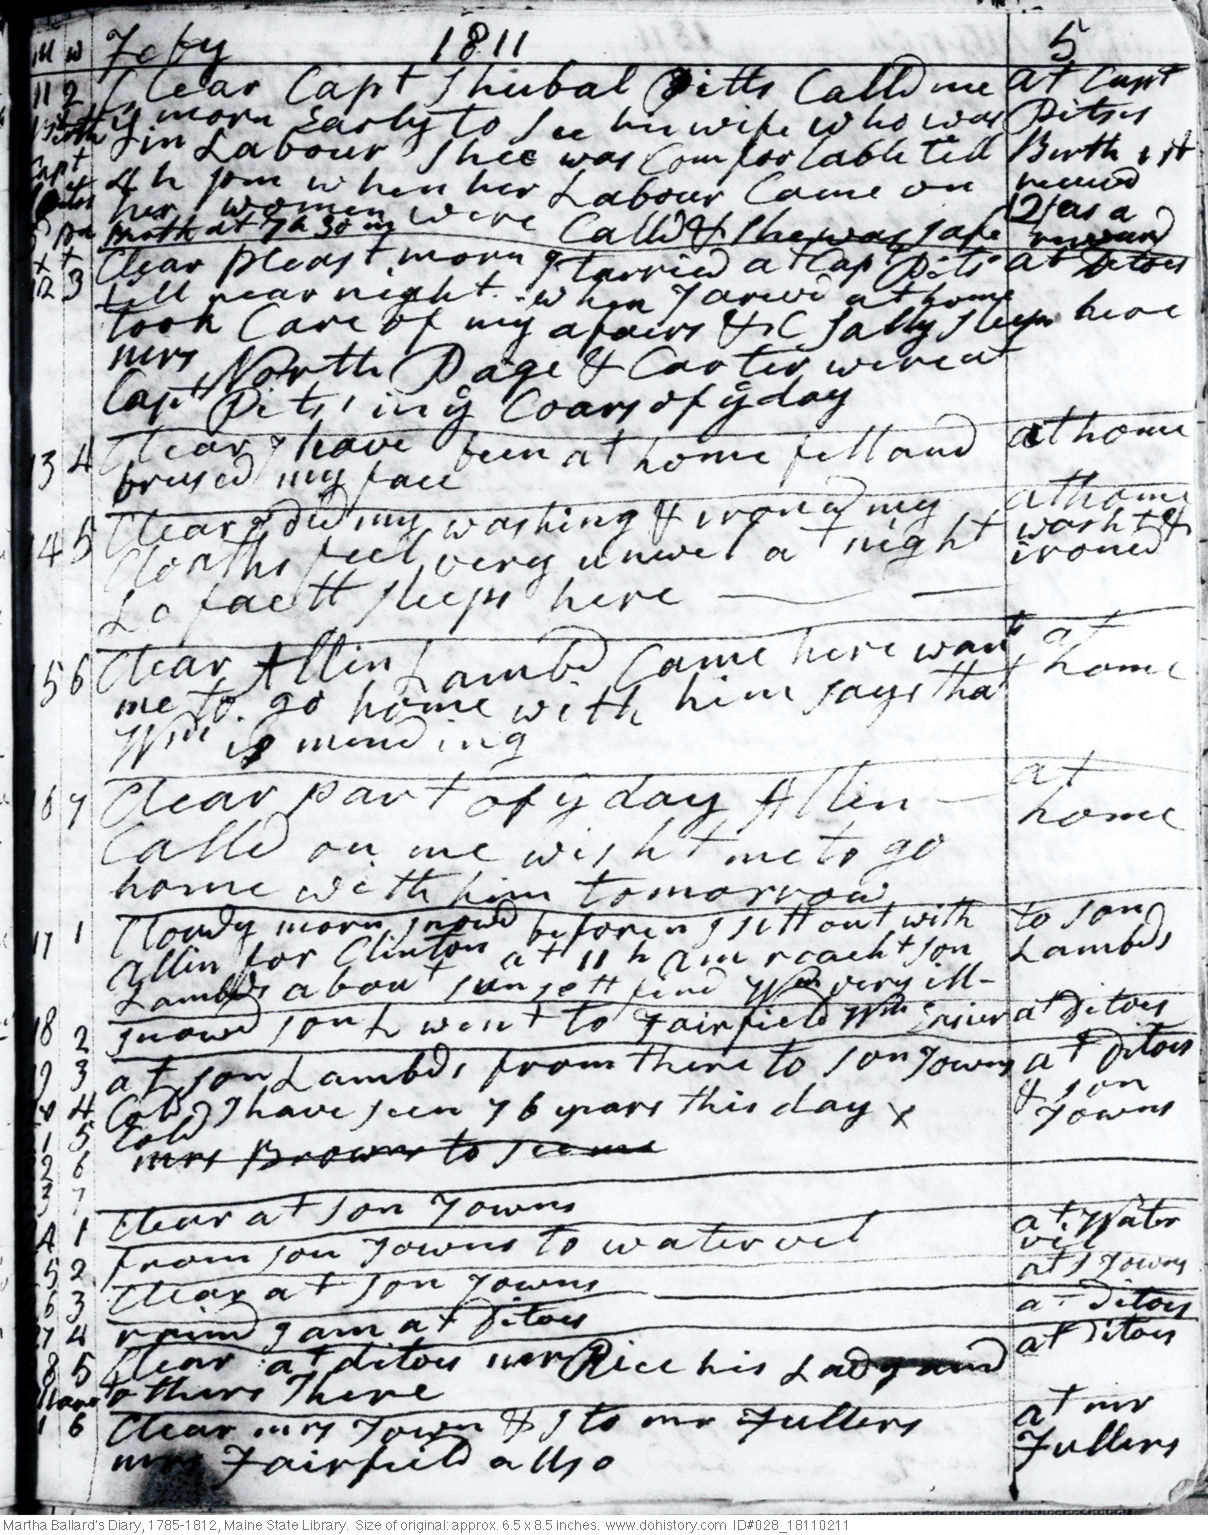 M W Feby 1811 5
11 2 Clear Capt Shubal Pitts Calld me at Capt
ÿ morn Early to See his wife who was Pitses
Birth in Labour Shee was Comfortable till Birth 1st
Capt 4 h pm when her Labour Came on received
Pitts her women were Calld & She was safe 2/ as a
Birth at 7 h 30 m reward
12 3 Clear pleast morn I tarried at Cap Pits at Ditoes
till near night when I arivd at home
took Care of my afairs &C Sally Sleeps here
mrs North Page & Carter were at
Capt Pits' in ÿ Coars of ÿ day
13 4 Clear I have been at home fell and at home
brused my face
14 5 Clear I did my washing & irond my at home
Cloaths feel very unwel at night washt &
Lafaett sleeps here ironed
15 6 Clear Allin Lambd Came here want at
me to go home with him says that home
Wm is mending
16 7 Clear part of ÿ day Allen at
Calld on me wisht me to go home
home with him tomorrow
17 1 Cloudy morn snowd before n I sett out with to son
Allin for Clinton at 11 h am reacht son Lambds
Lambds about sun sett find Wm very ill-
18 2 snowd son L went to Fairfield Wm at Ditoes
9 3 at son Lambds from there to son Towns at Ditoes
& son
20 4 Cold I have seen 76 years this day x Towns
1 5 Cold
2 6 mrs Browns to see me
3 7
Clear at son Towns
4 1 from son Towns to watervel at Water
vel
5 2 Clear at son Towns at s Towns
6 3 raind I am at Ditoes at Ditoes
27 4 Clear at ditoes mr Rice his Lady and at Ditoes
8 5 others There
March
1 6 Clear mrs Town & I to mr Fullers at mr
mrs Fairfield allso Fullers
Martha Ballard's Diary, 1785-1812, Maine State Library. Size of original: approx. 6.5 x 8.5 inches. www.dohistory.com ID#028_18110211